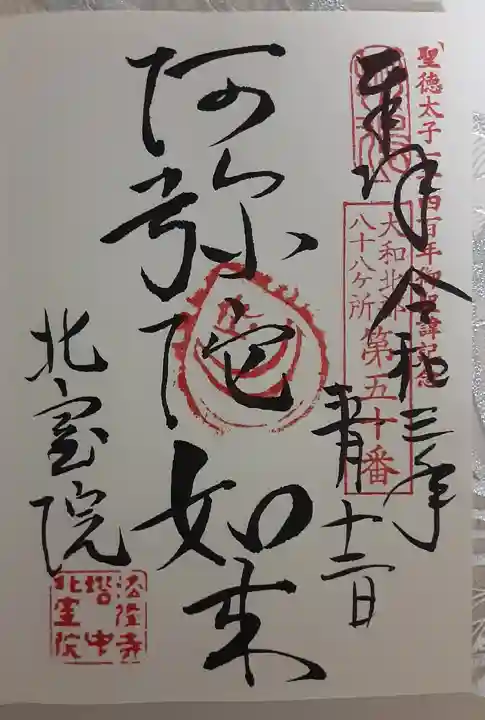 聖徳太子一千四百年御聖諱記念
奉拝
令和三年
大和北部
八十八ヶ所
第五十番
十二日
阿弥陀如来
北室院
法隆寺
塔中
北室院